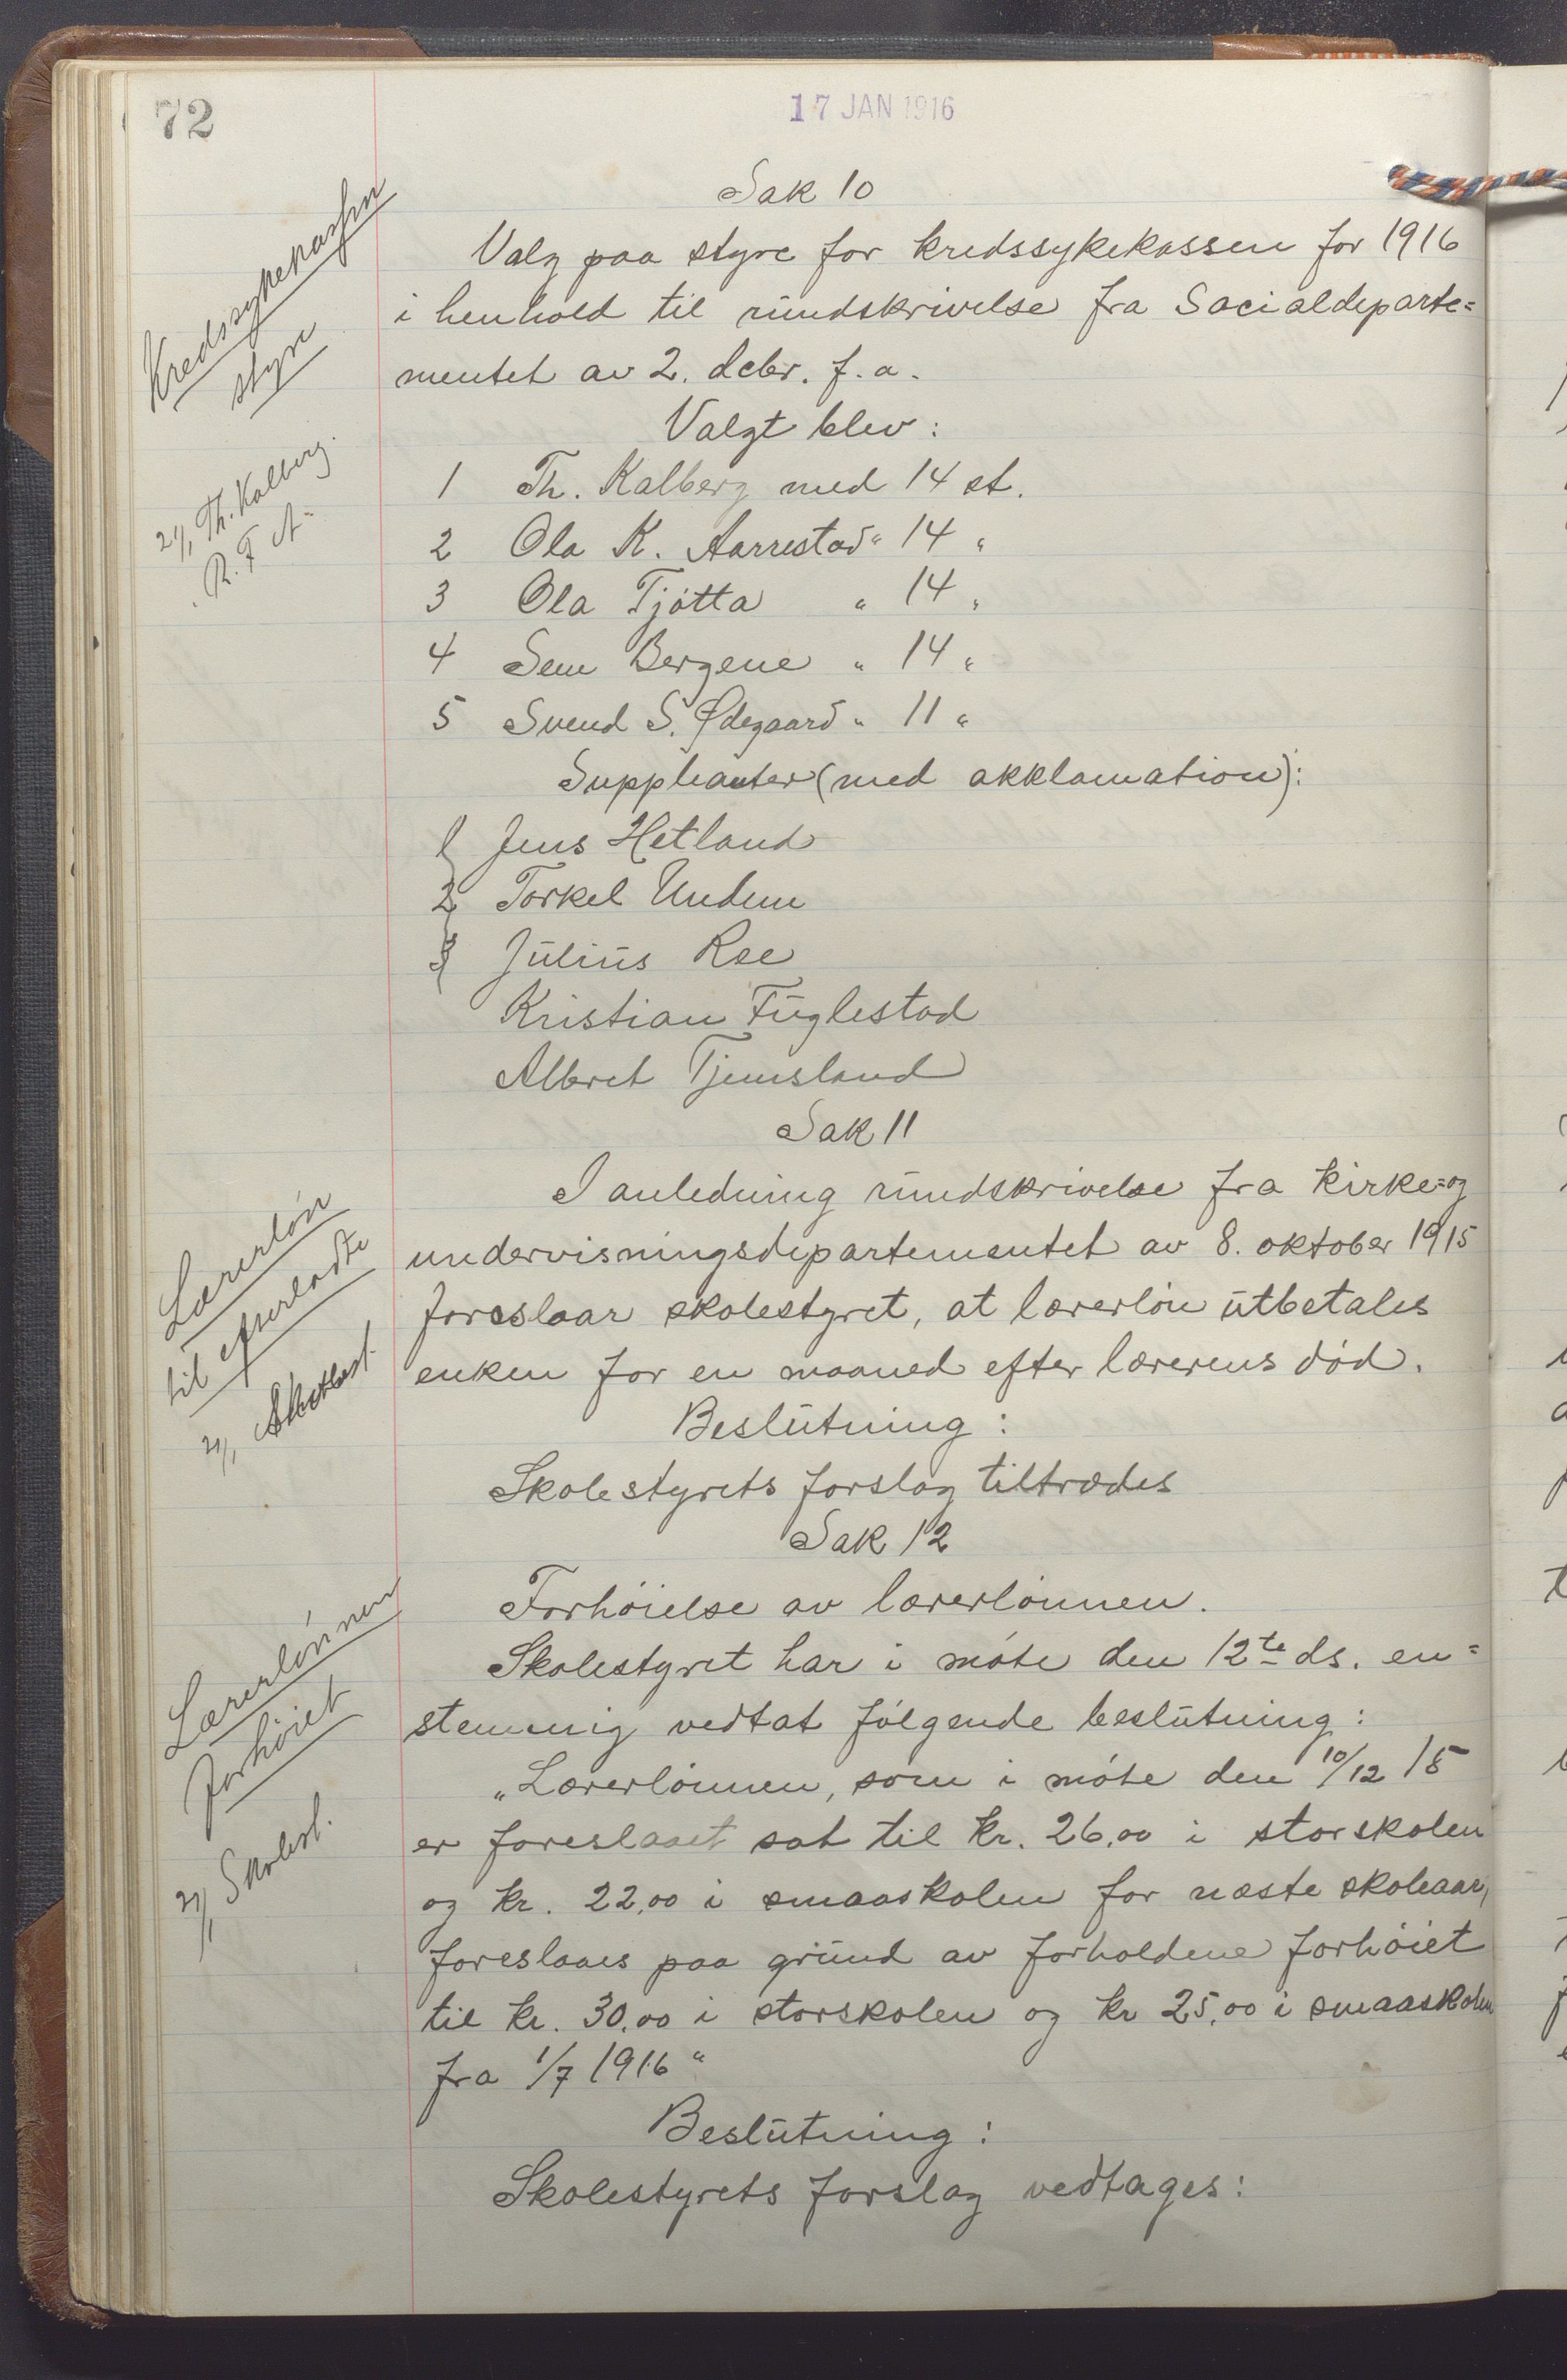 72
17 JAN 1916
Sak 10
Kredssykekassen
styre
Valg paa styre for kredssykekassen for 1916
i henhold til rundskrivelse fra Socialdeparte=
mentet av 2. debr. f.a.
Valgt blev:
21/1 Th. Kalberg.
R. F. A.
1 Th. Kalberg med 14 st.
2 Ola K. Aarrestad " 14 "
3 Ola Tjøtta " 14 "
4 Sem Bergene " 14 "
5 Svend S. Ødegaard " 11 "
Suppleanter (med akklamation):
1 Jens Hetland
2 Torkel Undem
3 Julius Ree
Kristian Fuglestad
Albret Tjemsland
Sak 11
Lærerløn
til efterladte
21/1 Skolest.
I anledning rundskrivelse fra kirke= og
undervisningsdepartementet av 8. oktober 1915
foreslaar skolestyret, at lærerløn utbetales
enken for en maaned efter lærerens død.
Beslutning:
Skolestyrets forslag tiltrædes
Sak 12
Lærerlønnen
forhøiet
21/1 Skolest.
Forhøielse av lærerlønnen.
Skolestyret har i møte den 12te ds. en=
stemmig vedtat følgende beslutning:
"Lærerlønnen, som i møte den 10/12 15
er foreslaaet sat til kr. 26,00 i storskolen
og kr. 22,00 i smaaskolen for næste skoleaar,
foreslaaes paa grund av forholdene forhøiet
til kr. 30,00 i storskolen og kr 25,00 i smaaskolen
fra 1/7 1916"
Beslutning:
Skolestyrets forslag vedtages: